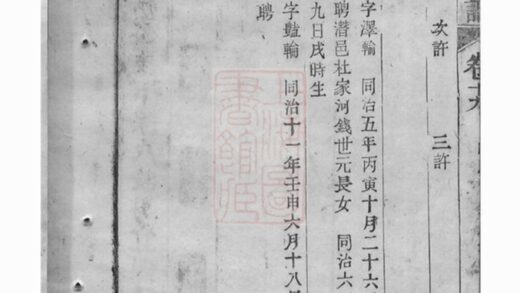 譜 卷十六
次許 三許
字澤輪 同治五年丙寅十月二十六
聘潛邑杜家河錢世元長女 同治六
九日戌時生
字豔輪 同治十一年壬申六月十八
聘